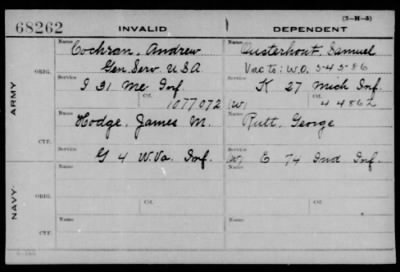 (3-H-5)
68262 INVALID DEPENDENT
Name Cochran, Andrew Name Ousterhout, Samuel
Gen. Serv. U.S.A. Vac to: W.O. 5-45-86
ORIG. Service I 31 Me Inf. Service K 27 Mich Inf.
ARMY Ctf. 1077072 (W) Ctf. 4486
Name Hodge, James M. Name Rutt, George
CTF. Service G 4 W.Va. Inf. Service (W) E 74 Ind Inf.
Name Ctf. Name Ctf.
NAVY ORIG. Service Service
Name Name
CTF. Service Service